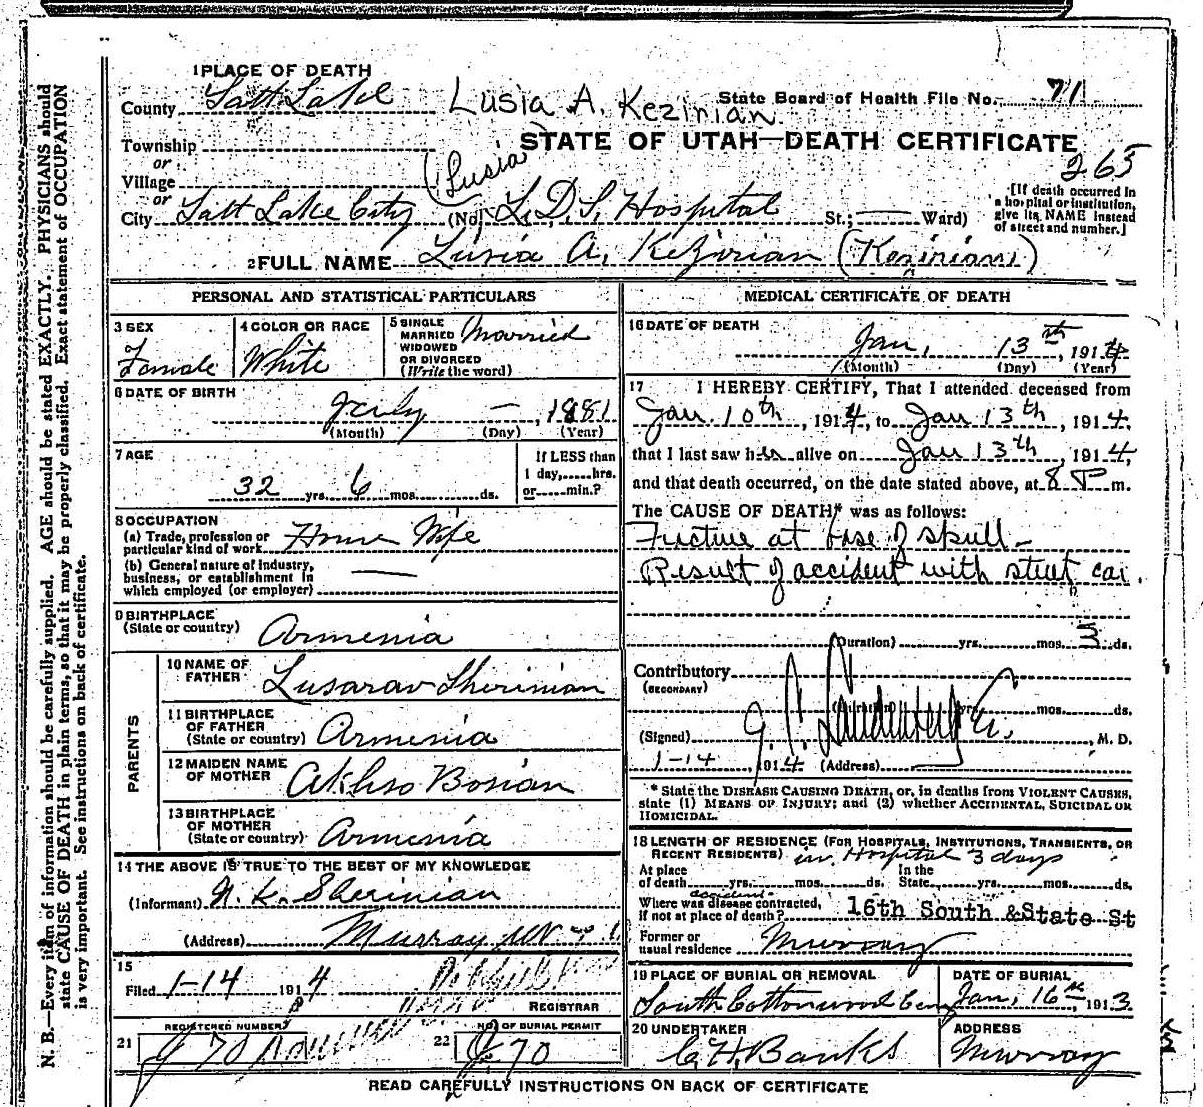 1 PLACE OF DEATH
County Salt Lake
Lusia A. Kezirian
State Board of Health File No. 71
Township
or
Village
or
(Lusia
STATE OF UTAH—DEATH CERTIFICATE
265
City Salt Lake City (No. L. D. S. Hospital St.; Ward)
[If death occurred in
a hospital or institution,
give its NAME instead
of street and number.]
2 FULL NAME Lusia A. Kezirian (Kezirian)
PERSONAL AND STATISTICAL PARTICULARS
3 SEX
Female
4 COLOR OR RACE
White
5 SINGLE
MARRIED
WIDOWED
OR DIVORCED
(Write the word)
Married
6 DATE OF BIRTH
July — , 1881
(Month) (Day) (Year)
7 AGE
32 yrs. 6 mos. ds.
If LESS than
1 day, hrs.
or min.?
8 OCCUPATION
(a) Trade, profession or
particular kind of work House Wife
(b) General nature of industry,
business, or establishment in
which employed (or employer)
9 BIRTHPLACE
(State or country) Armenia
PARENTS
10 NAME OF
FATHER Lusarav Sherinian
11 BIRTHPLACE
OF FATHER
(State or country) Armenia
12 MAIDEN NAME
OF MOTHER Akhso Bosian
13 BIRTHPLACE
OF MOTHER
(State or country) Armenia
14 THE ABOVE IS TRUE TO THE BEST OF MY KNOWLEDGE
(Informant) N. K. Sherinian
(Address) Murray
15
Filed 1-14 1914
REGISTRAR
REGISTERED NUMBER
21 70
NO. OF BURIAL PERMIT
22 70
MEDICAL CERTIFICATE OF DEATH
16 DATE OF DEATH
Jan, 13th, 1914
(Month) (Day) (Year)
17 I HEREBY CERTIFY, That I attended deceased from
Jan. 10th, 1914, to Jan 13th, 1914,
that I last saw her alive on Jan 13th, 1914,
and that death occurred, on the date stated above, at 8 P m.
The CAUSE OF DEATH* was as follows:
Fructure at base of skull -
Result of accident with street car.
(Duration) yrs. mos. 3 ds.
Contributory
(SECONDARY)
(Duration) yrs. mos. ds.
(Signed) , M. D.
1-14, 1914 (Address)
* State the DISEASE CAUSING DEATH, or, in deaths from VIOLENT CAUSES,
state (1) MEANS OF INJURY; and (2) whether ACCIDENTAL, SUICIDAL OR
HOMICIDAL.
18 LENGTH OF RESIDENCE (FOR HOSPITALS, INSTITUTIONS, TRANSIENTS, OR
RECENT RESIDENTS) in Hospital 3 days
At place In the
of death yrs. mos. ds. State yrs. mos. ds.
accident
Where was disease contracted,
if not at place of death? 16th South & State St
Former or
usual residence Murray
19 PLACE OF BURIAL OR REMOVAL
South Cottonwood Cem
DATE OF BURIAL
Jan, 16th, 1913
20 UNDERTAKER
C. H. Banks
ADDRESS
Murray
READ CAREFULLY INSTRUCTIONS ON BACK OF CERTIFICATE
N. B.—Every item of information should be carefully supplied. AGE should be stated EXACTLY. PHYSICIANS should
state CAUSE OF DEATH in plain terms, so that it may be properly classified. Exact statement of OCCUPATION
is very important. See instructions on back of certificate.